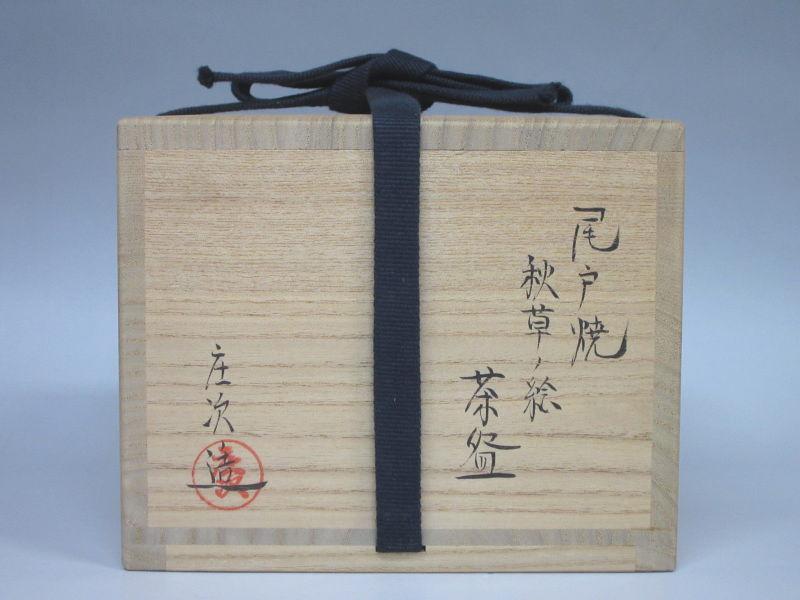 尾戸焼
秋草ノ絵
茶盌
庄次造